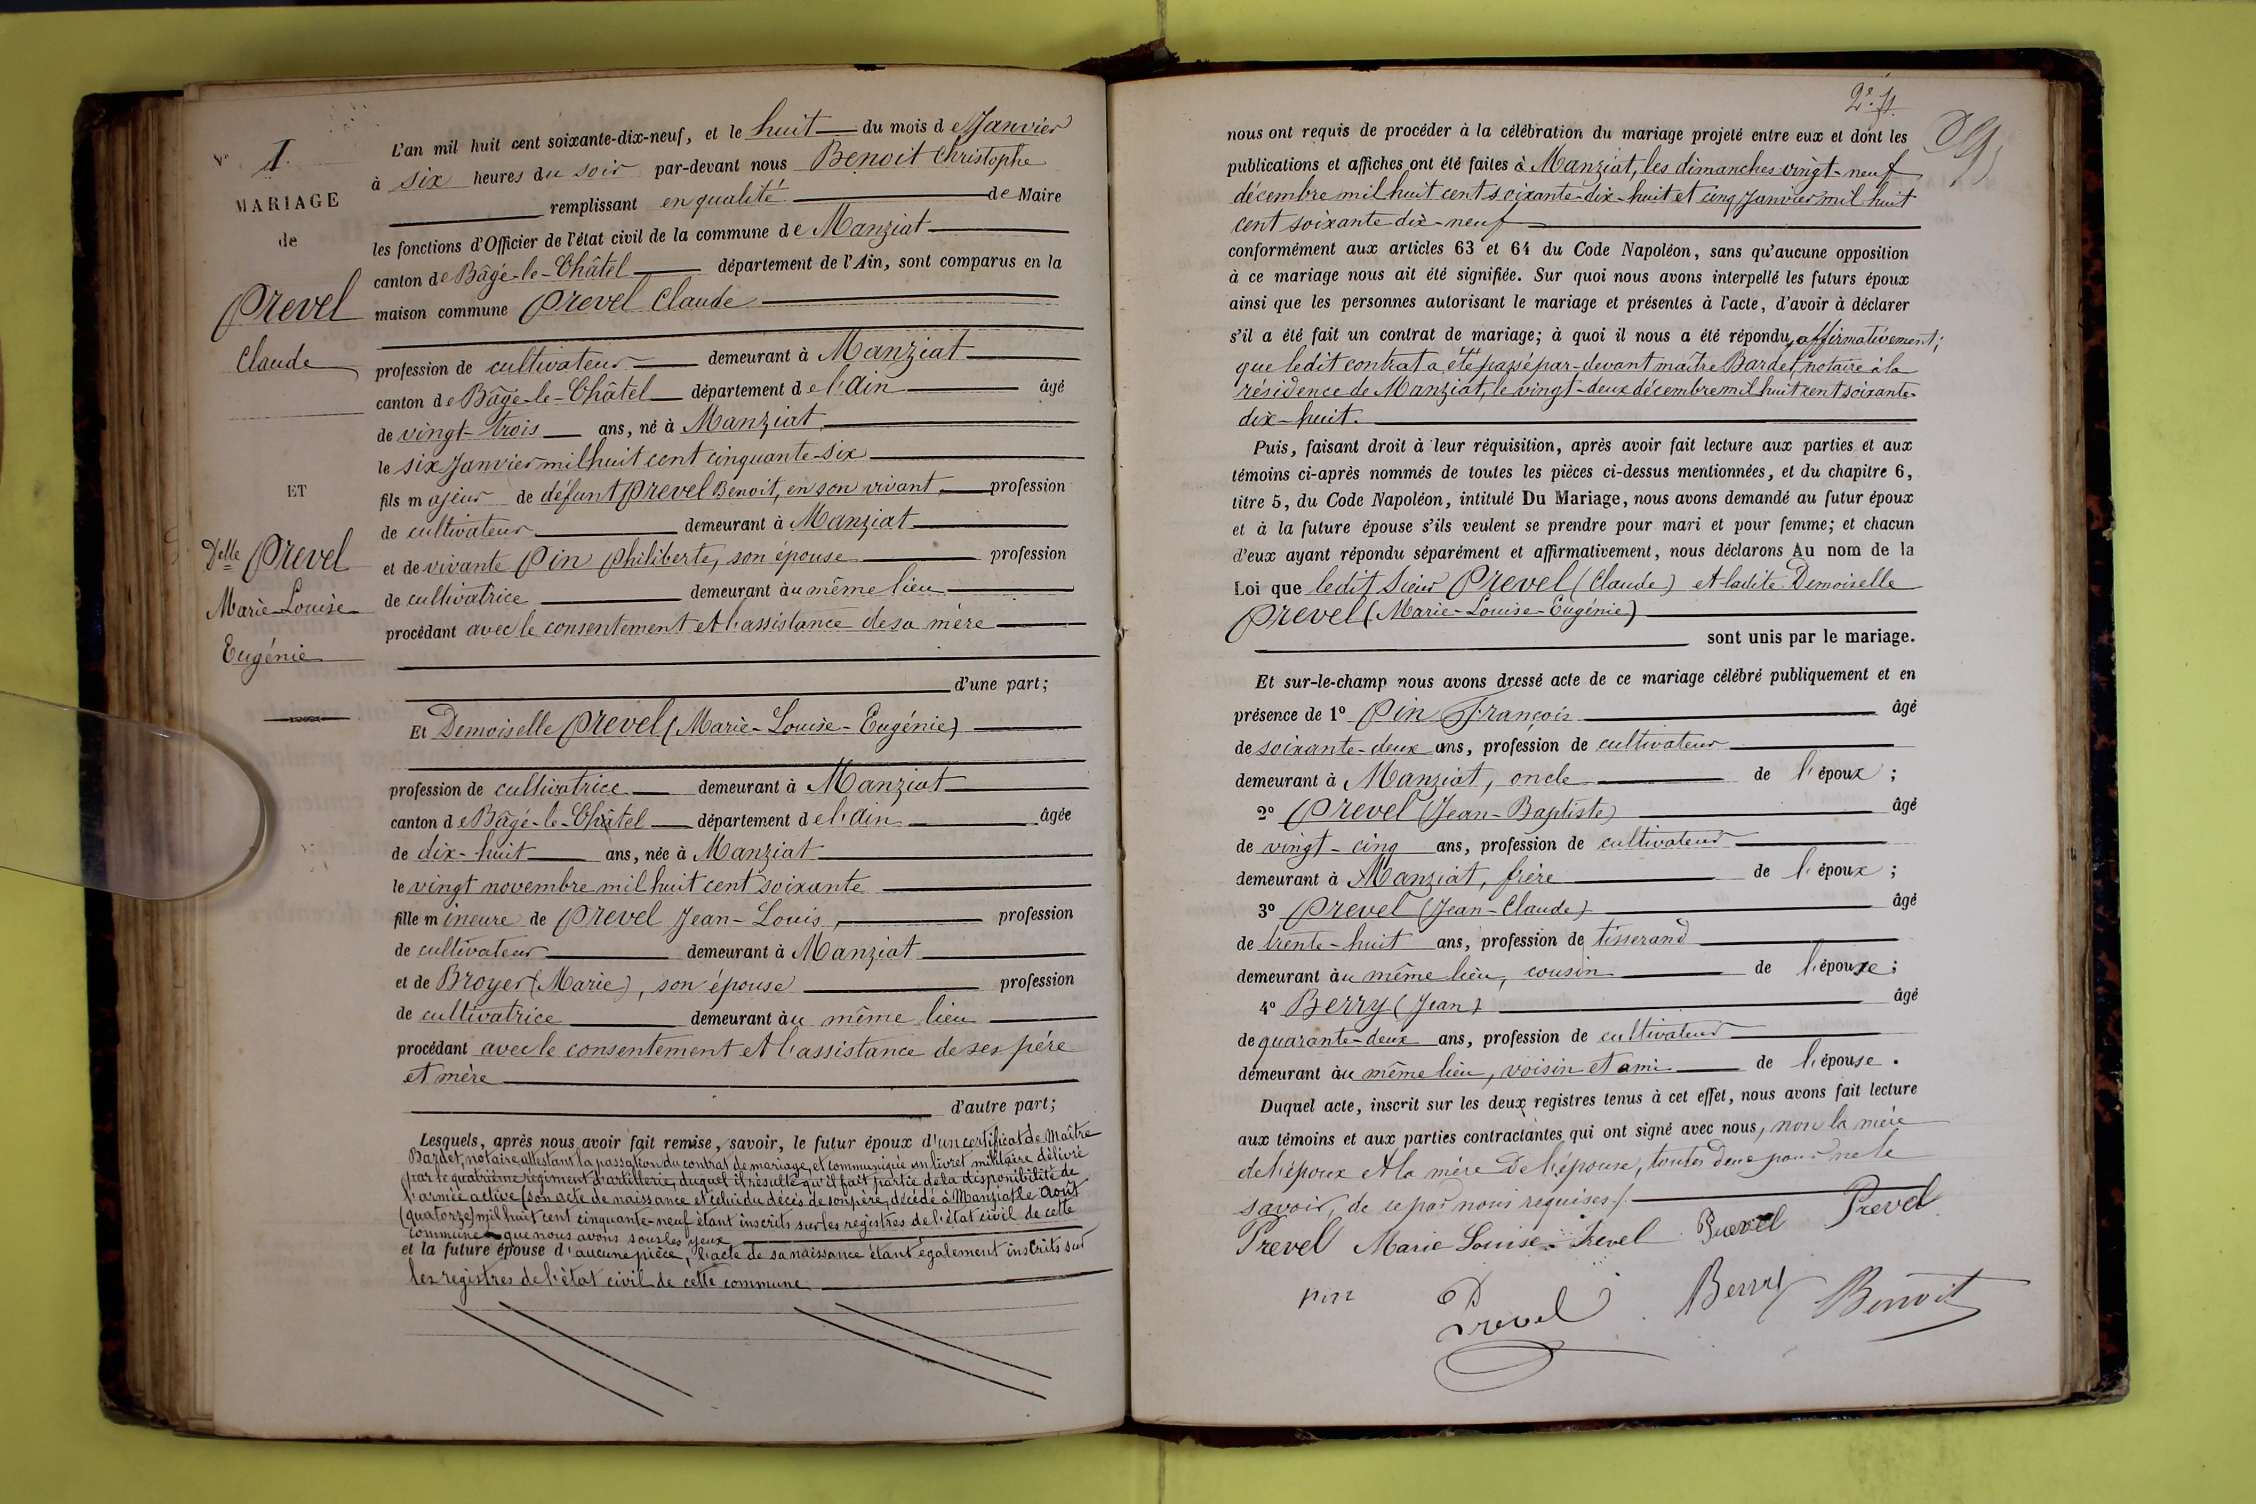 N° 1.
MARIAGE
de
Prevel
Claude
ET
Delle Prevel
Marie-Louise
Eugénie
L'an mil huit cent soixante-dix-neuf, et le huit du mois de Janvier
à six heures du soir par-devant nous Benoit Christophe
remplissant en qualité de Maire
les fonctions d'Officier de l'état civil de la commune de Manziat
canton de Bâgé-le-Châtel département de l'Ain, sont comparus en la
maison commune Prevel Claude
profession de cultivateur demeurant à Manziat
canton de Bâgé-le-Châtel département de l'Ain âgé
de vingt-trois ans, né à Manziat
le six Janvier mil huit cent cinquante-six
fils majeur de défunt Prevel Benoit, en son vivant profession
de cultivateur demeurant à Manziat
et de vivante Pin Philiberte, son épouse profession
de cultivatrice demeurant au même lieu
procédant avec le consentement et l'assistance de sa mère
d'une part;
Et Demoiselle Prevel (Marie-Louise-Eugénie)
profession de cultivatrice demeurant à Manziat
canton de Bâgé-le-Châtel département de l'Ain âgée
de dix-huit ans, née à Manziat
le vingt novembre mil huit cent soixante
fille mineure de Prevel Jean-Louis, profession
de cultivateur demeurant à Manziat
et de Broyer (Marie), son épouse profession
de cultivatrice demeurant au même lieu
procédant avec le consentement et l'assistance de ses père
et mère
d'autre part;
Lesquels, après nous avoir fait remise, savoir, le futur époux d'un certificat de Maître
Bardet, notaire, attestant la passation du contrat de mariage, et communiqué un livret militaire délivré
par le quatrième régiment d'artillerie, duquel il résulte qu'il fait partie de la disponibilité de
l'armée active (son acte de naissance et celui du décès de son père, décédé à Manziat le août
(quatorze) mil huit cent cinquante-neuf étant inscrits sur les registres de l'état civil de cette
commune que nous avons sous les yeux
et la future épouse d'aucune pièce, l'acte de sa naissance étant également inscrits sur
les registres de l'état civil de cette commune
nous ont requis de procéder à la célébration du mariage projeté entre eux et dont les
publications et affiches ont été faites à Manziat, les dimanches vingt-neuf
décembre mil huit cent soixante-dix-huit et cinq Janvier mil huit
cent soixante-dix-neuf
conformément aux articles 63 et 64 du Code Napoléon, sans qu'aucune opposition
à ce mariage nous ait été signifiée. Sur quoi nous avons interpellé les futurs époux
ainsi que les personnes autorisant le mariage et présentes à l'acte, d'avoir à déclarer
s'il a été fait un contrat de mariage; à quoi il nous a été répondu affirmativement;
que ledit contrat a été passé par-devant maître Bardet, notaire à la
résidence de Manziat, le vingt-deux décembre mil huit cent soixante-
dix-huit.
Puis, faisant droit à leur réquisition, après avoir fait lecture aux parties et aux
témoins ci-après nommés de toutes les pièces ci-dessus mentionnées, et du chapitre 6,
titre 5, du Code Napoléon, intitulé Du Mariage, nous avons demandé au futur époux
et à la future épouse s'ils veulent se prendre pour mari et pour femme; et chacun
d'eux ayant répondu séparément et affirmativement, nous déclarons Au nom de la
Loi que ledit Sieur Prevel (Claude) et ladite Demoiselle
Prevel (Marie-Louise-Eugénie)
sont unis par le mariage.
Et sur-le-champ nous avons dressé acte de ce mariage célébré publiquement et en
présence de 1° Pin François âgé
de soixante-deux ans, profession de cultivateur
demeurant à Manziat, oncle de l'époux;
2° Prevel (Jean-Baptiste) âgé
de vingt-cinq ans, profession de cultivateur
demeurant à Manziat, frère de l'époux;
3° Prevel (Jean-Claude) âgé
de trente-huit ans, profession de tisserand
demeurant au même lieu, cousin de l'épouse;
4° Berry (Jean) âgé
de quarante-deux ans, profession de cultivateur
demeurant au même lieu, voisin et ami de l'épouse.
Duquel acte, inscrit sur les deux registres tenus à cet effet, nous avons fait lecture
aux témoins et aux parties contractantes qui ont signé avec nous, non la mère
de l'époux et la mère de l'épouse, toutes deux pour ne le
savoir, de ce par nous requises.
Prevel Marie Louise Prevel Prevel Prevel
Pin Prevel Berry Benoit